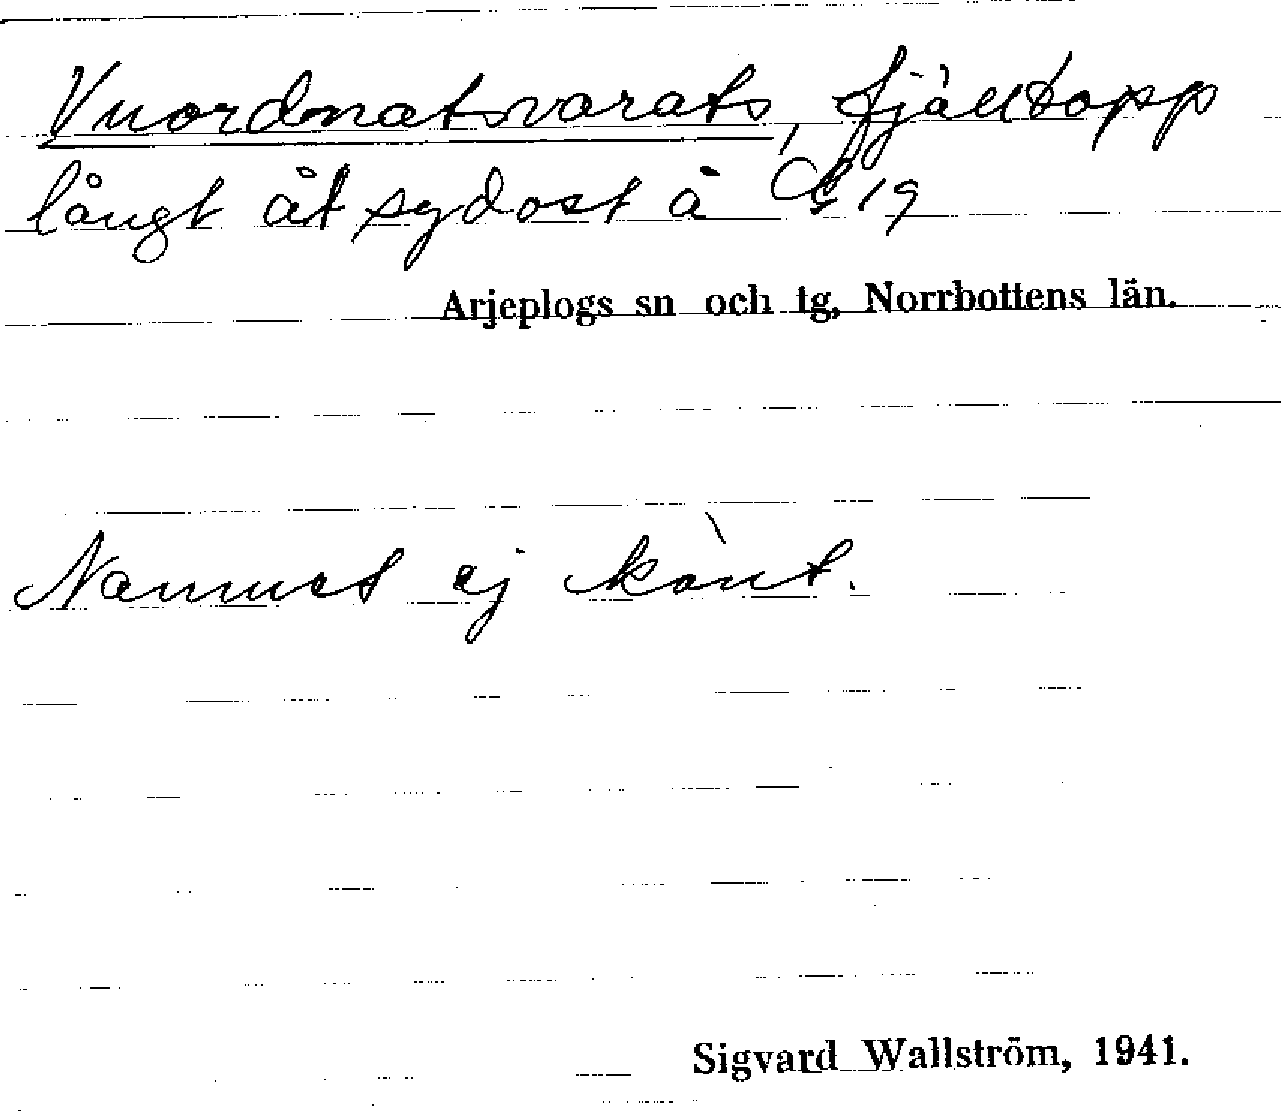 Vuordnatsvarats, fjälltopp
långt åt sydost å G 19
Arjeplogs sn och tg, Norrbottens län.
Namnet ej känt.
Sigvard Wallström, 1941.